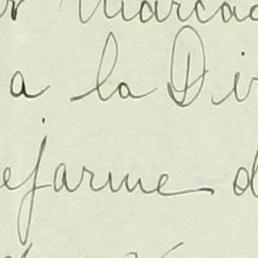 Marcad
a la Div
ejarme d